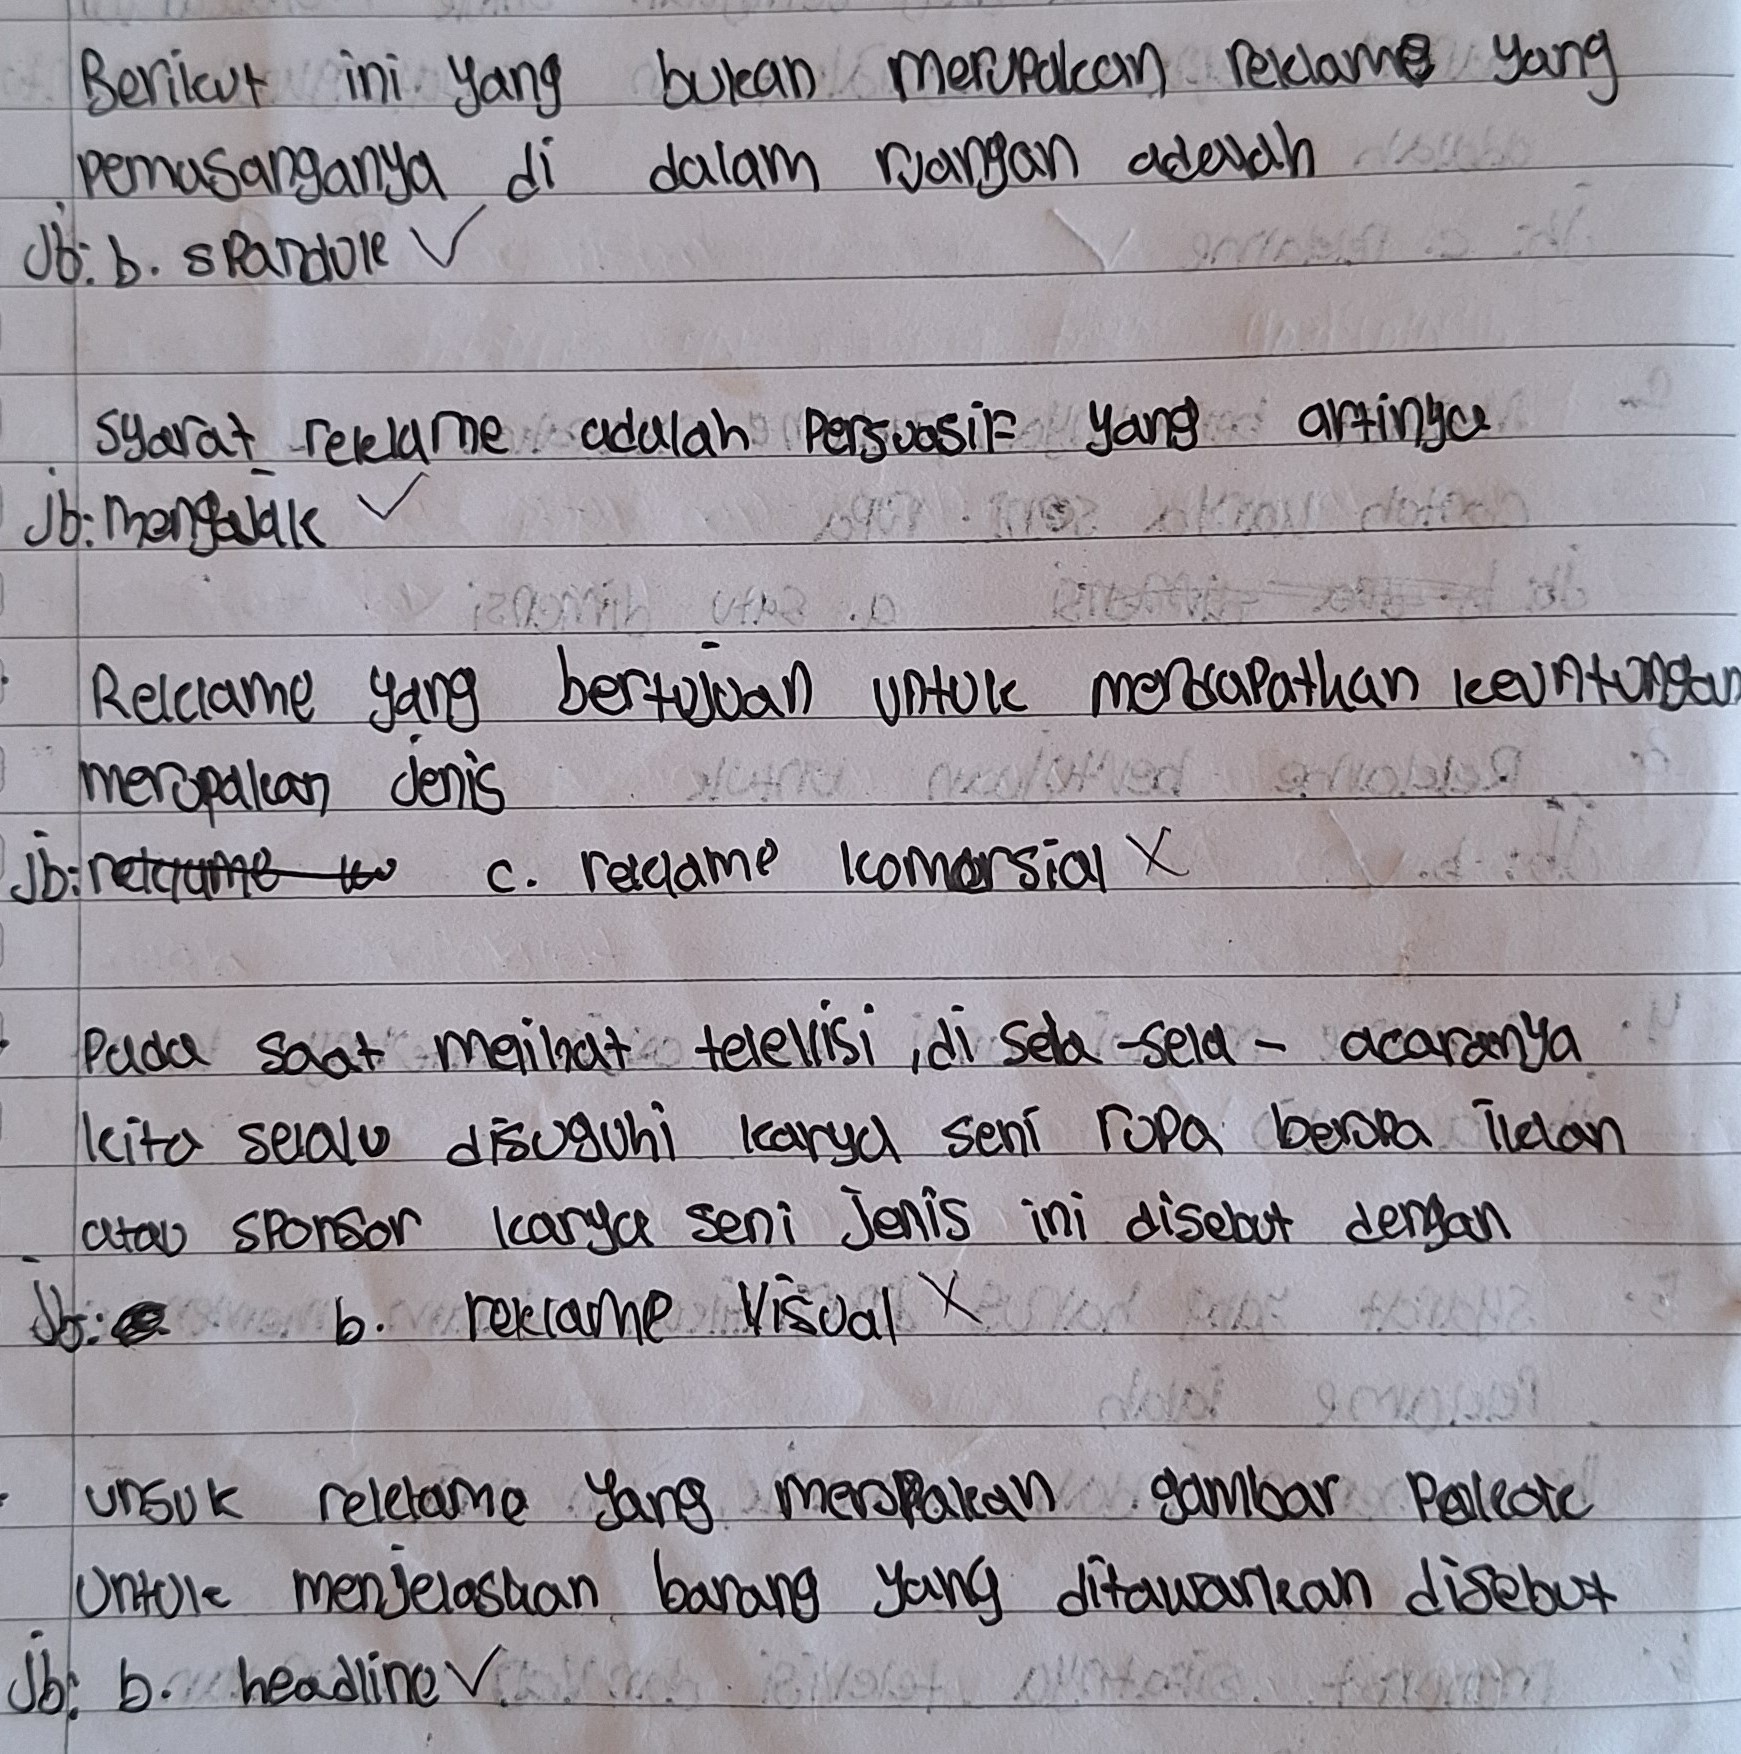 Berikut ini yang bukan merupakan reklame yang
pemasanganya di dalam ruangan adalah
Jb: b. spanduk ✓
Syarat reklame adalah persuasif yang artinya
Jb: mengajak ✓
Reklame yang bertujuan untuk mendapathan keuntungan
merupakan jenis
Jb: reklame c. reklame komersial X
Pada saat meilhat televisi, di sela - sela - acaranya
kita selalu disuguhi karya seni rupa berupa iklan
atau sponsor karya seni jenis ini disebut dengan
Jb: b. reklame visual X
unsuk reklame yang merupakan gambar pokok
untuk menjelaskan barang yang ditawarkan disebut
Jb: b. headline ✓